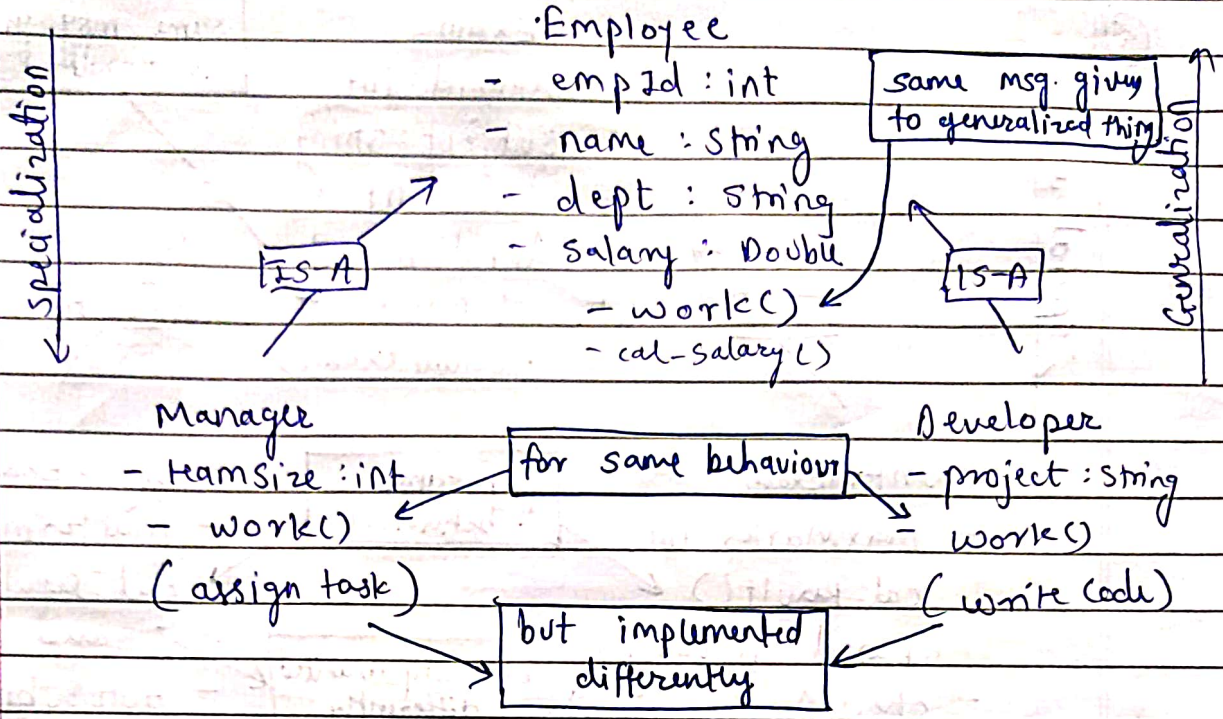 Employee
- empId : int
- name : String
- dept : String
- salary : Double
- work()
- cal-salary()
same msg. given
to generalized thing
Specialization
Generalization
IS-A
IS-A
Manager
- teamsize : int
- work()
(assign task)
for same behaviour
Developer
- project : String
- work()
(write code)
but implemented
differently